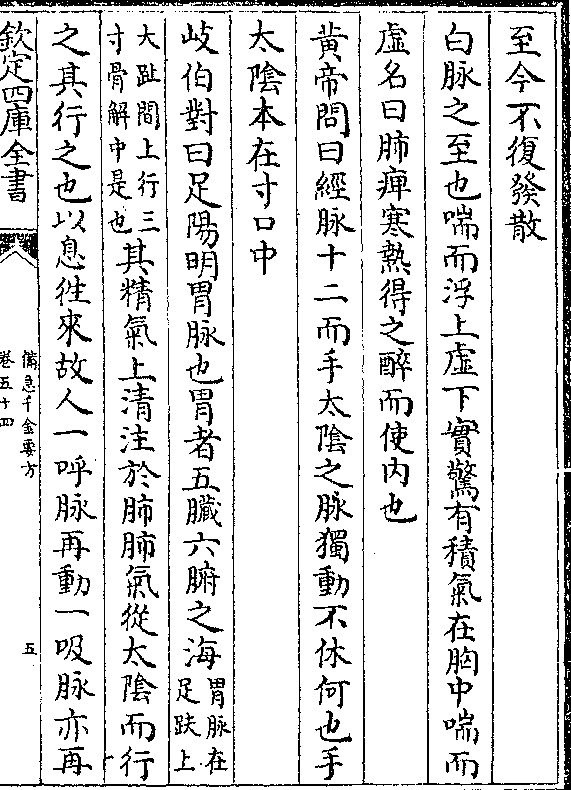 至今不復發散
白脉之至也喘而浮上虛下實驚有積氣在胸中喘而
虛名曰肺痺寒熱得之醉而使内也
黄帝問曰經脉十二而手太隂之脉獨動不休何也手
太隂本在寸口中
岐伯對曰足陽明胃脉也胃者五臟六腑之海胃脉在足趺上
大趾間上行三寸骨解中是也其精氣上清注於肺肺氣從太隂而行
之其行之也以息徃來故人一呼脉再動一吸脉亦再
欽定四庫全書
備急千金要方
卷五十四
五